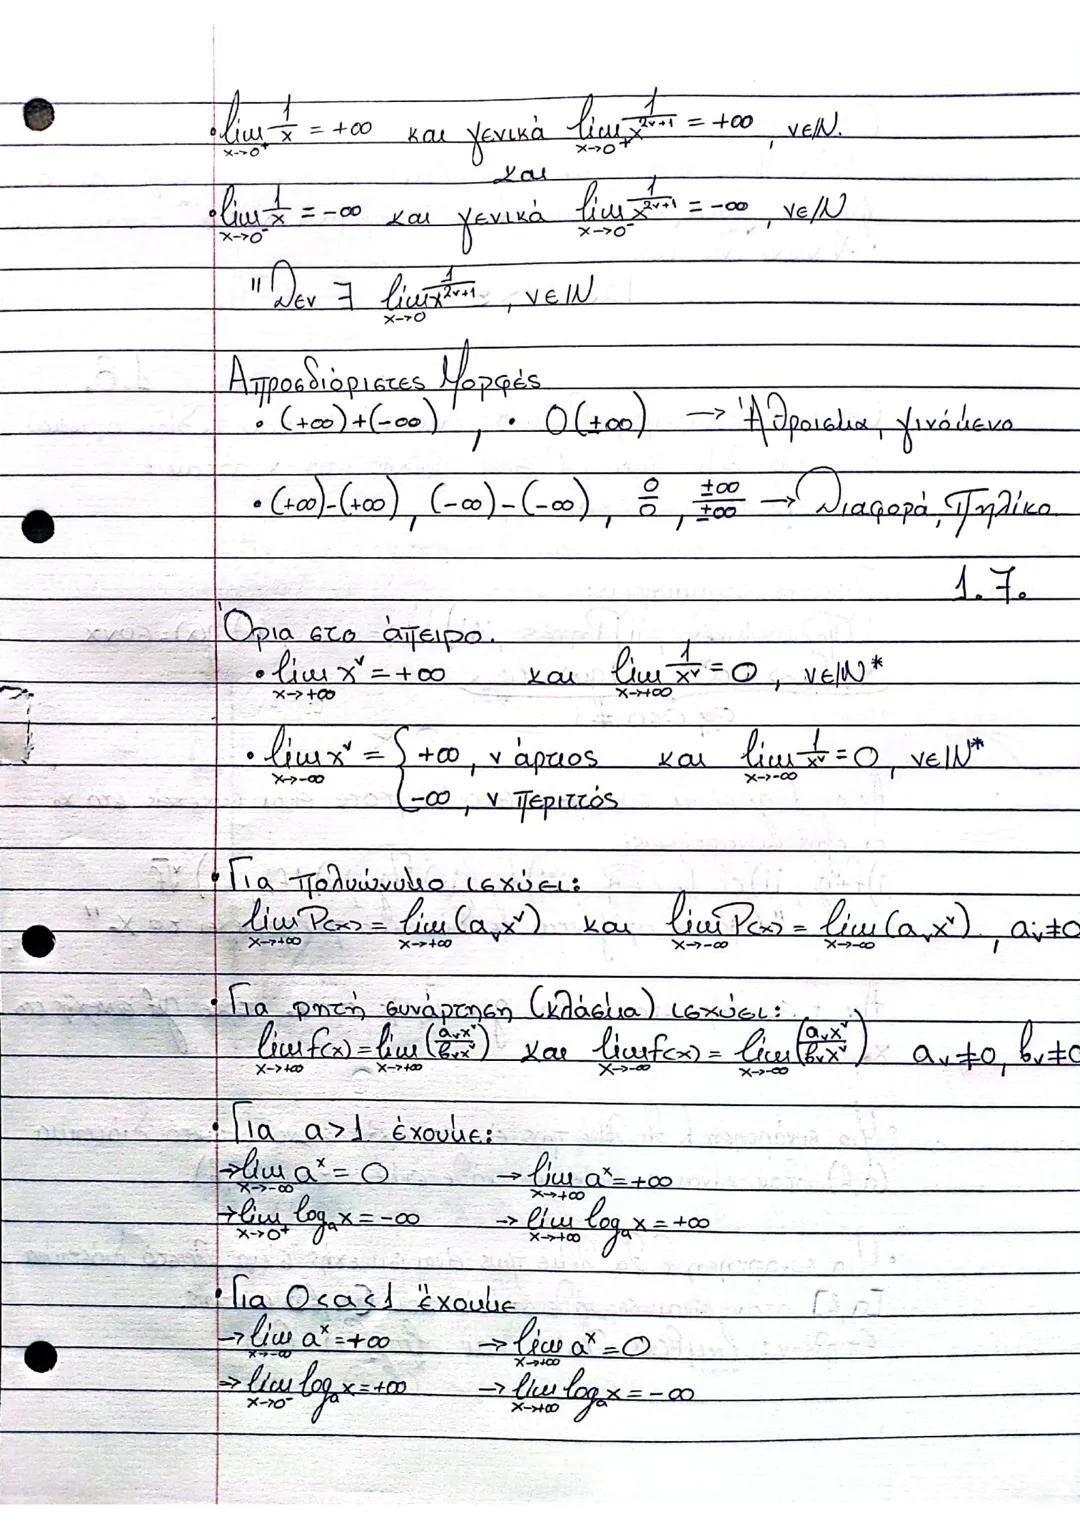 • lim_{x→0⁺} 1/x = +∞ και γενικά lim_{x→0⁺} 1/x^{2ν+1} = +∞, ν∈ℕ.
και
• lim_{x→0⁻} 1/x = -∞ και γενικά lim_{x→0⁻} 1/x^{2ν+1} = -∞, ν∈ℕ
"Δεν ∃ lim_{x→0} 1/x^{2ν+1}, ν∈ℕ
Απροσδιόριστες Μορφές
• (+∞)+(-∞), • 0(±∞) → Άθροισμα, γινόμενο
• (+∞)-(+∞), (-∞)-(-∞), 0/0, ±∞/±∞ → Διαφορά, Πηλίκο
1.7.
Όρια στο άπειρο.
• lim_{x→+∞} x^ν = +∞ και lim_{x→+∞} 1/x^ν = 0, ν∈ℕ*
• lim_{x→-∞} x^ν = { +∞, ν άρτιος και lim_{x→-∞} 1/x^ν = 0, ν∈ℕ*
-∞, ν περιττός
• Για πολυώνυμο ισχύει:
lim_{x→+∞} P(x) = lim_{x→+∞} (a_ν x^ν) και lim_{x→-∞} P(x) = lim_{x→-∞} (a_ν x^ν), a_ν≠0
• Για ρητή συνάρτηση (κλάσμα) ισχύει:
lim_{x→+∞} f(x) = lim_{x→+∞} (a_ν x^ν/b_ν x^ν) και lim_{x→-∞} f(x) = lim_{x→-∞} (a_ν x^ν/b_ν x^ν) a_ν≠0, b_ν≠0
• Για a>1 έχουμε:
→ lim_{x→-∞} a^x = 0 → lim_{x→+∞} a^x = +∞
→ lim_{x→0⁺} log_a x = -∞ → lim_{x→+∞} log_a x = +∞
• Για 0<a<1 έχουμε
→ lim_{x→-∞} a^x = +∞ → lim_{x→+∞} a^x = 0
→ lim_{x→0⁻} log_a x = +∞ → lim_{x→+∞} log_a x = -∞